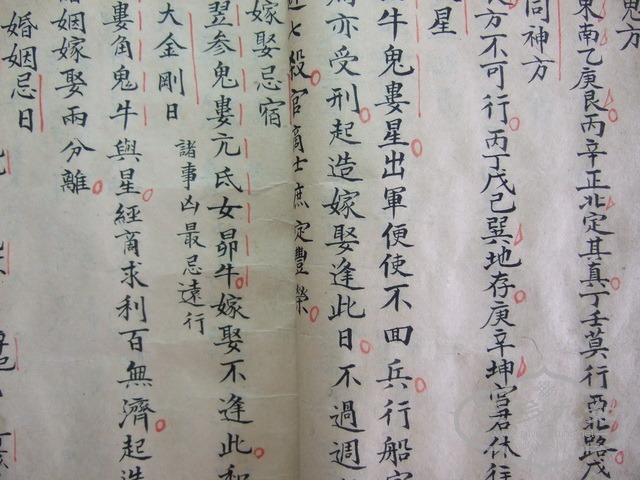 鬼方
東南乙庚艮丙辛正北定其真丁壬莫行西北路戊
同神方
方不可行丙丁戊己巽地存庚辛坤宮君休往
星
牛鬼婁星出軍便使不回兵行船
亦受刑起造嫁娶逢此日不過週
七殺官商士庶定豐榮
嫁娶忌宿
翌参鬼婁亢氐女昴牛嫁娶不逢此和
諸事凶最忌遠行
大金剛日
婁角鬼牛與星經商求利百無濟起造
姻嫁娶兩分離
婚姻忌日